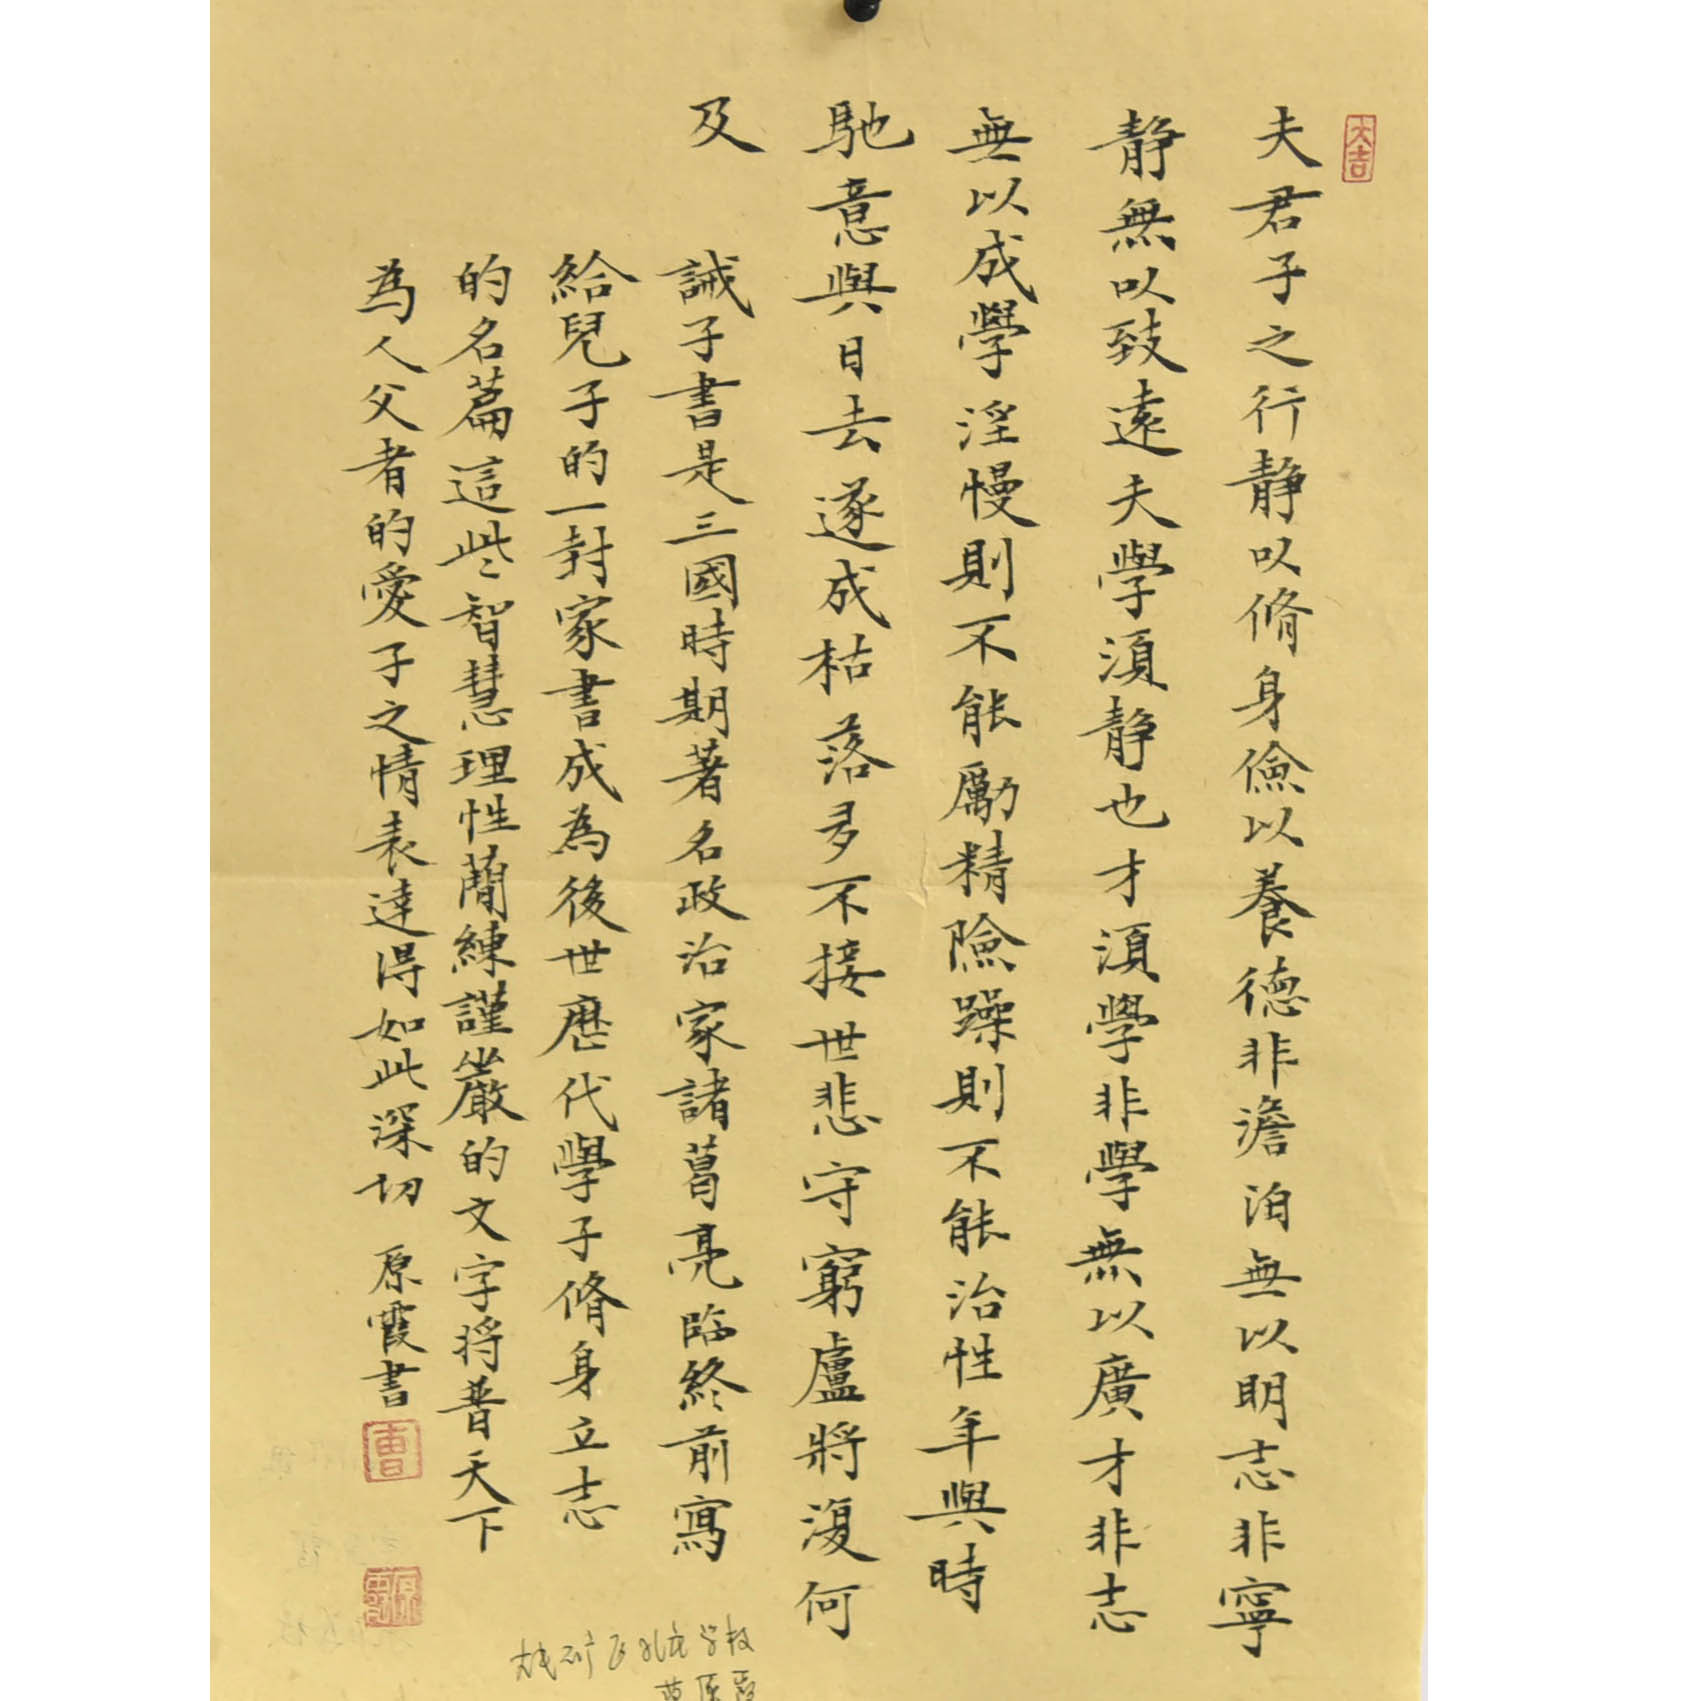 大吉
夫君子之行靜以脩身儉以養德非澹泊無以明志非寧
靜無以致遠夫學須靜也才須學非學無以廣才非志
無以成學淫慢則不能勵精險躁則不能治性年與時
馳意與日去遂成枯落多不接世悲守窮廬將復何
及
誡子書是三國時期著名政治家諸葛亮臨終前寫
給兒子的一封家書成為後世歷代學子脩身立志
的名篇這些智慧理性蕳練謹嚴的文字將普天下
為人父者的愛子之情表達得如此深切 原霞書
曹